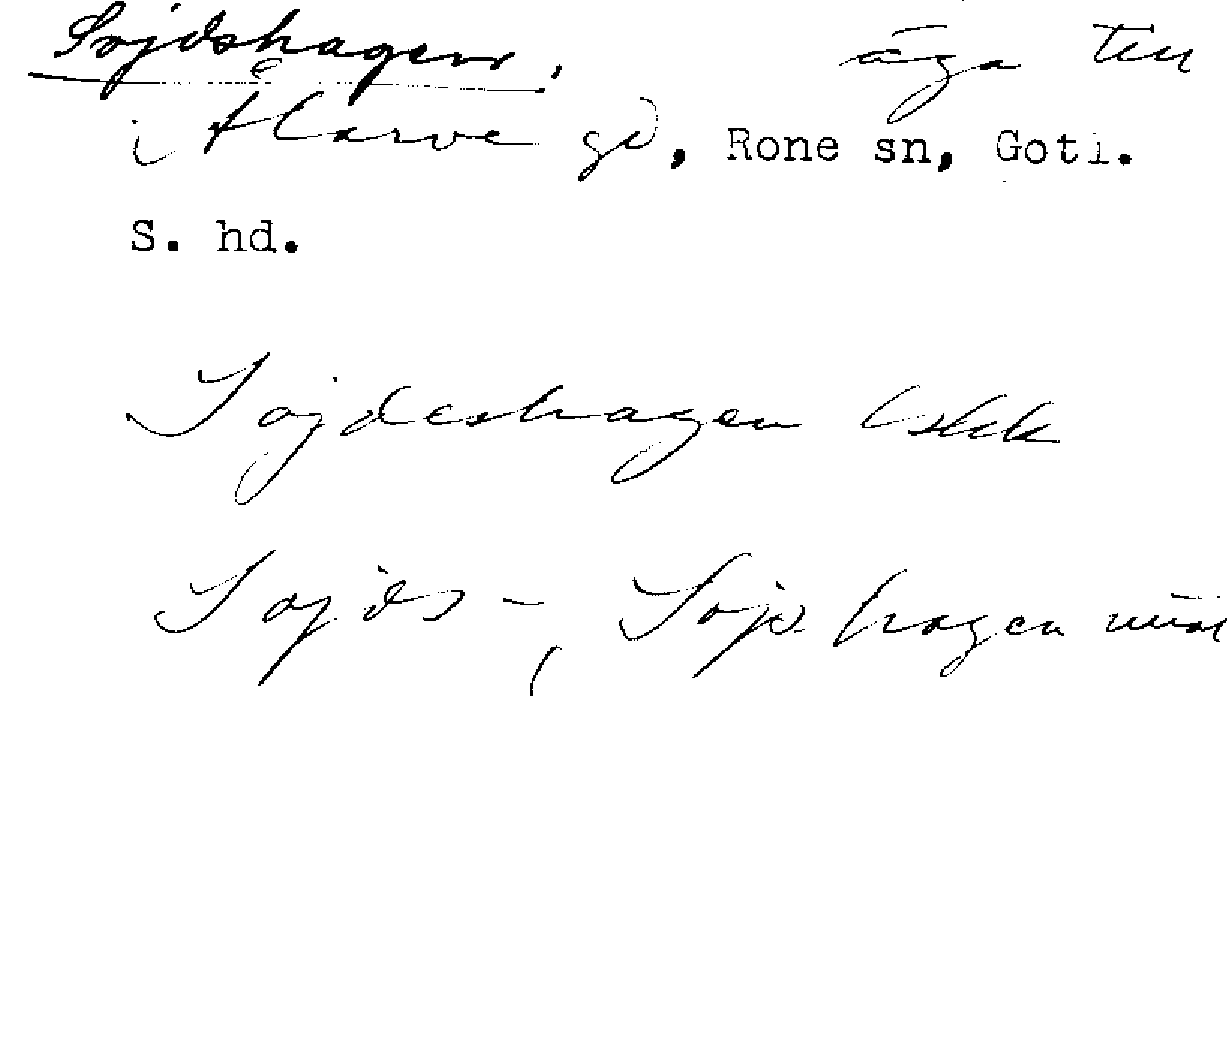 Sojdshagen, äga till
i Alarve gd, Rone sn, Gotl.
S. hd.
Sojdeshagen lskk
Sojds-, Sojshagen